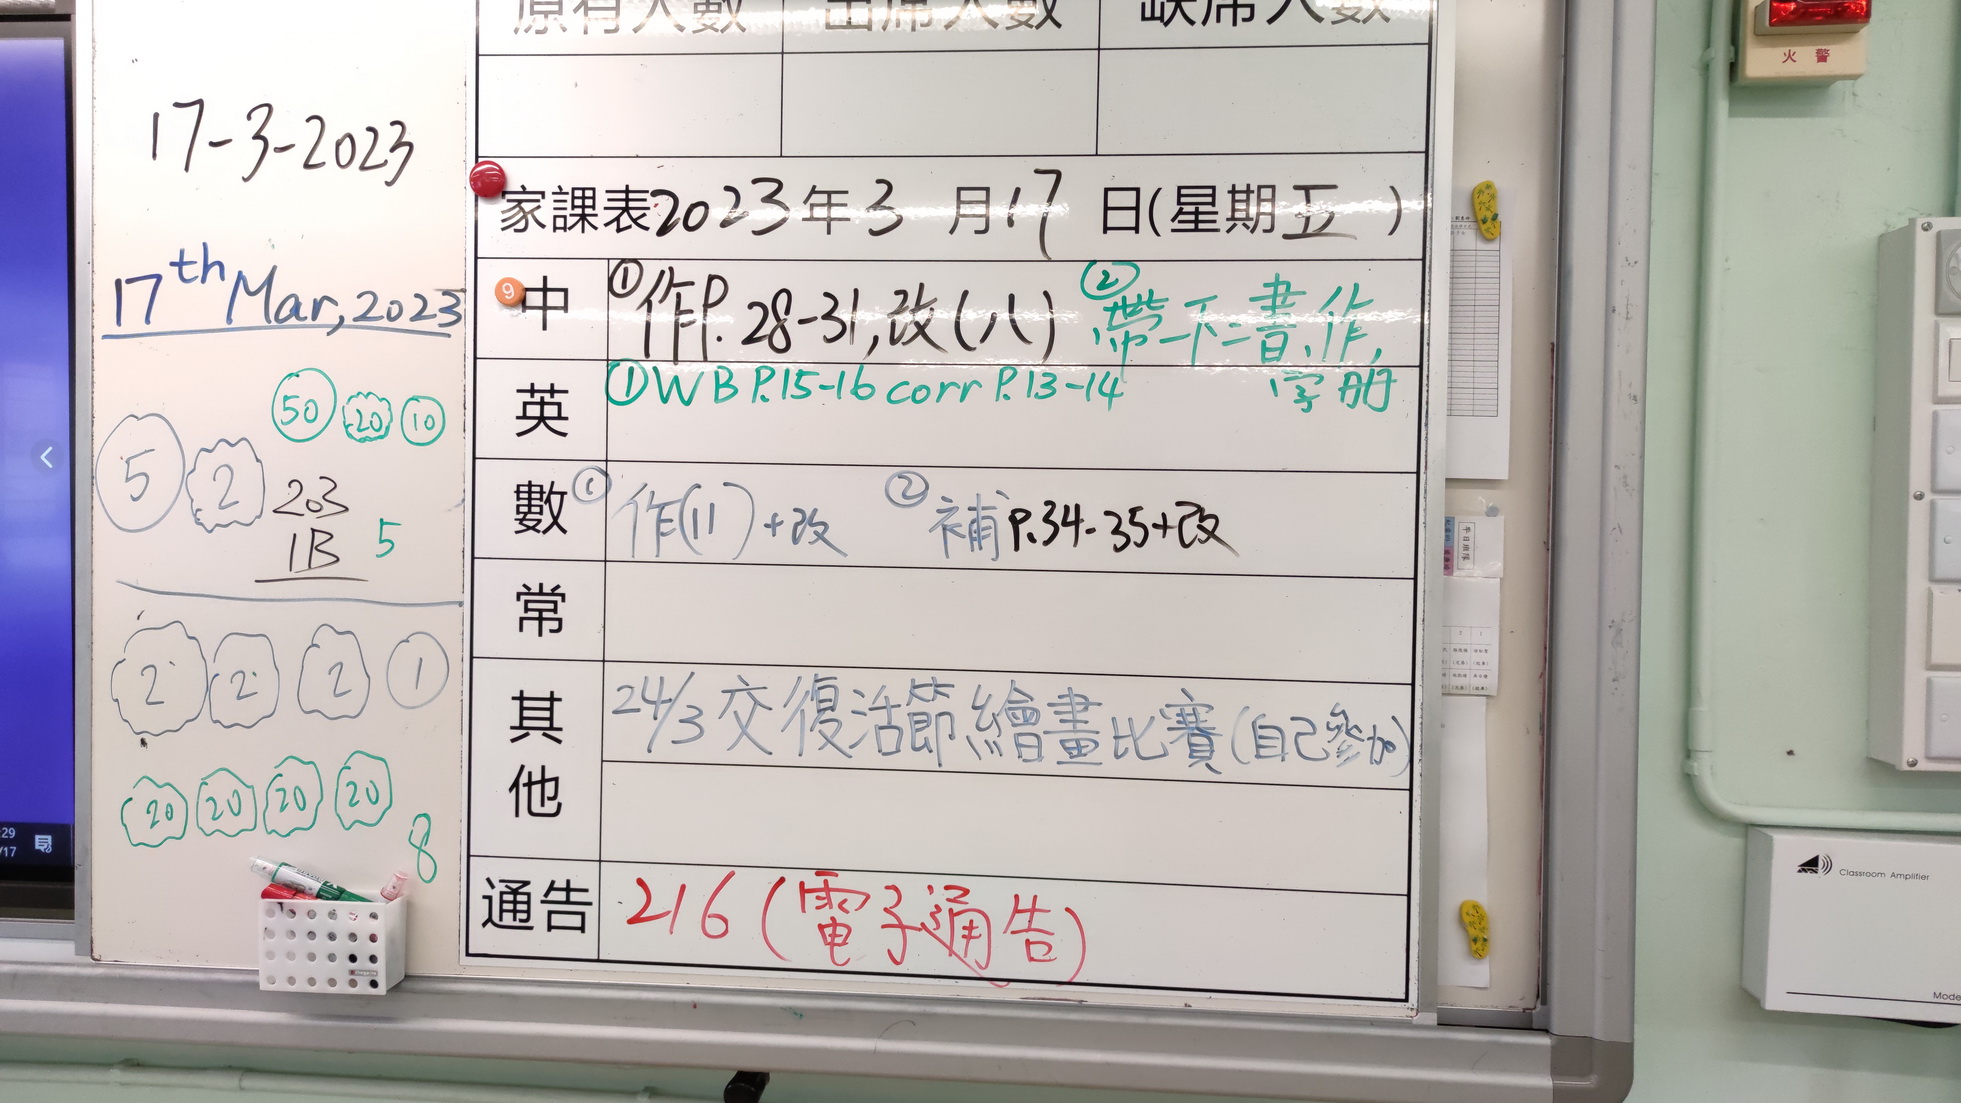 原有人數 出席人數 缺席人數
17-3-2023
家課表2023年3月17日(星期五)
17th Mar, 2023
9
中 ①作P.28-31,改(八) ②帶一下二書、作,
字冊
英 ①WB P.15-16 corr P.13-14
數 ①作(11)+改 ②補P.34-35+改
常
其他 24/3交復活節繪畫比賽(自己參加)
通告 216(電子通告)
50 20 10
5 2
203
1B 5
2 2 2 1
20 20 20 20
8
:29
/17
火警
Classroom Amplifier
Mode